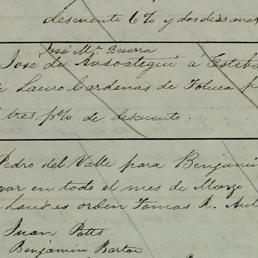 descuento 6% y dos dias mas
José Ma. Becerra
José de Ansoategui a Esteba
Lauro Cardenas de Toluca p
tres p% de descuento.
Pedro del Valle para Benjamin
gar en todo el mes de Marzo
orden Tomas R.
Juan Potts
Benjamin Barton